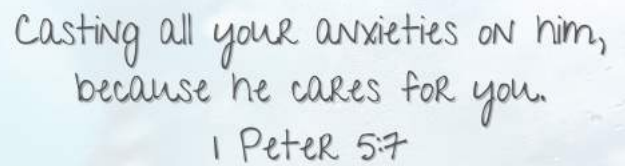 Casting all your anxieties on him,
because he cares for you.
1 Peter 5:7